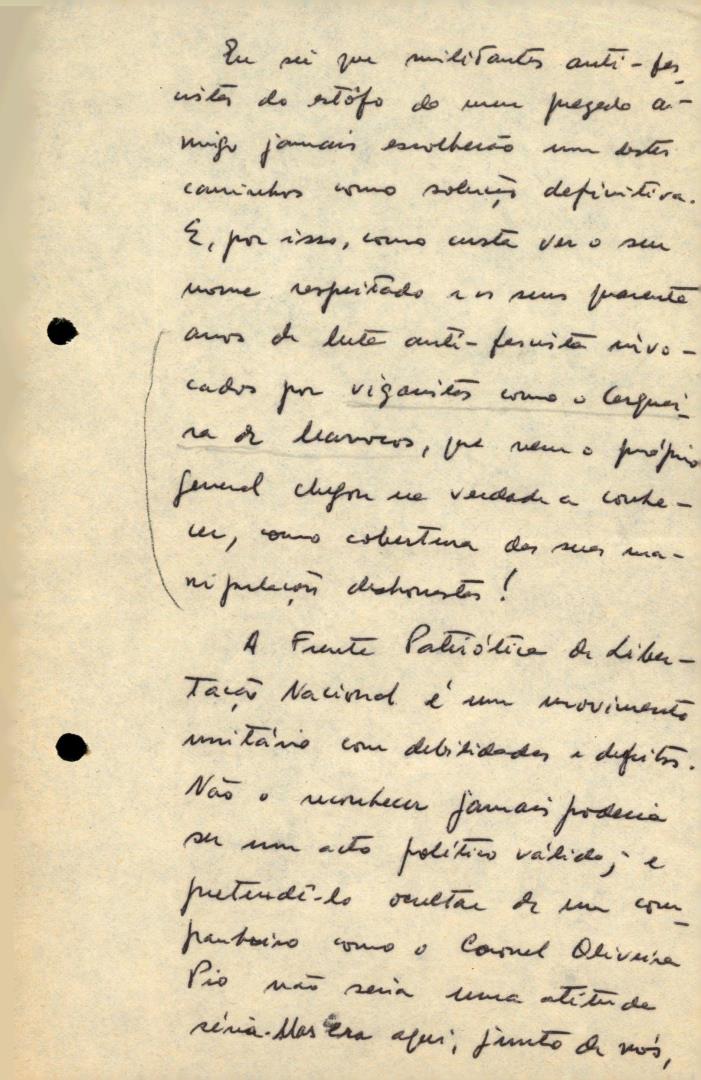 Eu sei que militantes anti-fas-
cistas do estôfo do meu prezado a-
migo jamais escolherão um destes
caminhos como solução definitiva.
E, por isso, como custa ver o seu
nome respeitado e os seus quarenta
anos de luta anti-fascista invo-
cados por vigaristas como o Cerquei-
ra de Marrocos, que nem o próprio
general chegou na verdade a conhe-
cer, como cobertura das suas ma-
nipulações deshonestas!
A Frente Patriótica de Liber-
tação Nacional é um movimento
unitário com debilidades e defeitos.
Não o reconhecer jamais poderia
ser um acto político válido; e
pretendê-lo ocultar de um com-
panheiro como o Coronel Oliveira
Pio não seria uma atitude
séria. Mas era aqui, junto de nós,